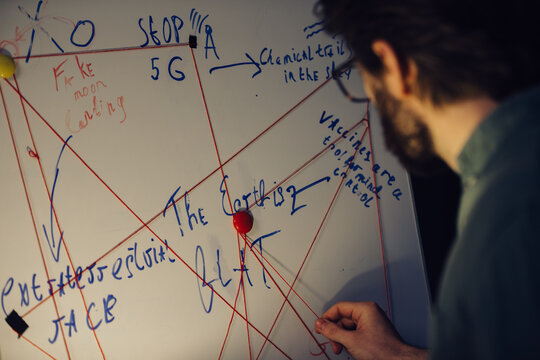 X O
STOP
5G
A
Chemical trails
in the sky
FAKE
moon
Landing
Vaccines are a
tool for mind
control
The Earth is
FLAT